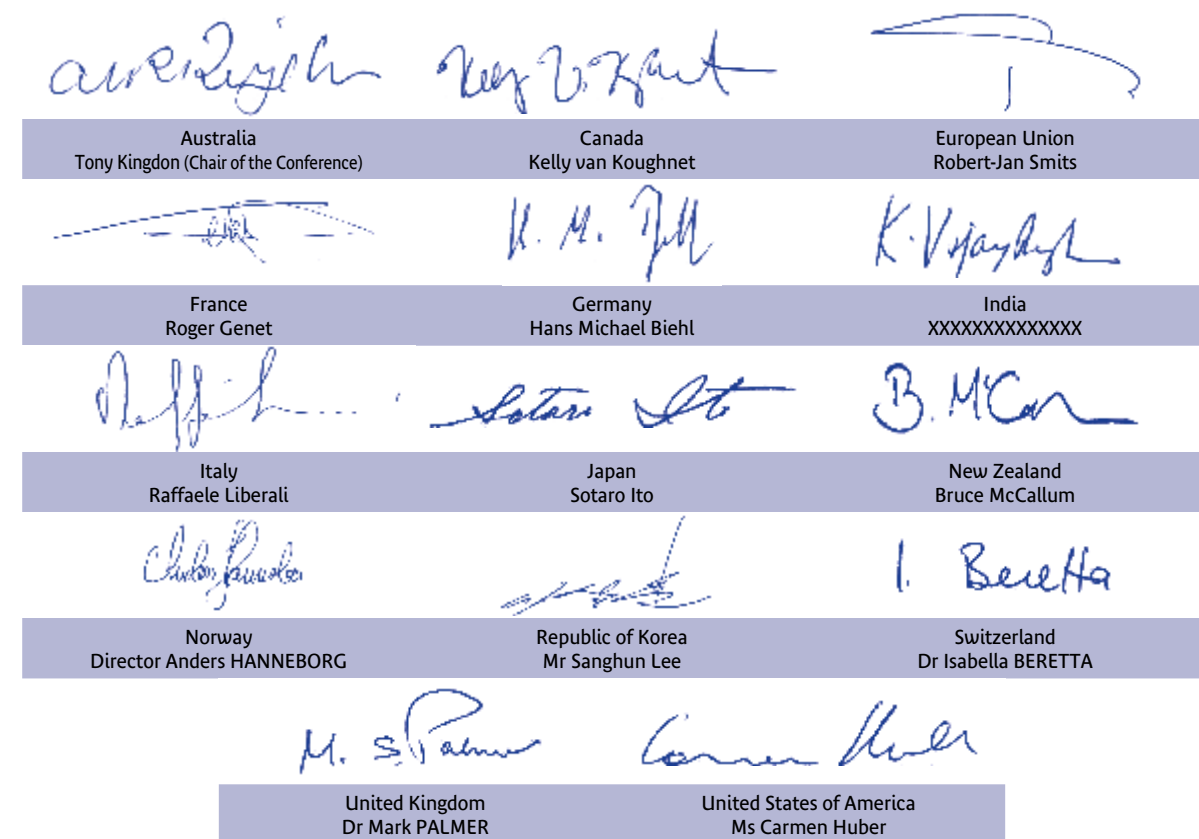 Australia
Tony Kingdon (Chair of the Conference)
Canada
Kelly van Koughnet
European Union
Robert-Jan Smits
France
Roger Genet
H. M.
Germany
Hans Michael Biehl
K.
India
XXXXXXXXXXXXXX
Italy
Raffaele Liberali
Sotaro Ito
Japan
Sotaro Ito
B. McCa
New Zealand
Bruce McCallum
Norway
Director Anders HANNEBORG
Republic of Korea
Mr Sanghun Lee
I. Beretta
Switzerland
Dr Isabella BERETTA
M. S. Palmer
United Kingdom
Dr Mark PALMER
Carmen Huber
United States of America
Ms Carmen Huber